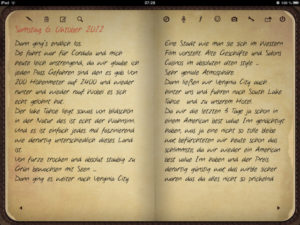 iPad
07:28
Samstag 6. Oktober 2012
Dann ging's endlich los.
Die Fahrt war für Corolla und mich
heute leicht anstrengend, da wir glaube ich
jeden Pass Gefahren sind den es gab. Von
200 Höhenmeter auf 2400 und wieder
runter und wieder rauf. Wobei es sich
echt gelohnt hat.
Der lake Tahoe liegt sowas von bildschön
in der Natur das ist echt der Wahnsinn.
Und es ist einfach jedes mal faszinierend
wie derartig unterschiedlich dieses Land
ist.
Von furzen trocken und absolut staubig zu
Grün bewachsen mit Seen ...
Dann ging es weiter nach Verginia City.
Eine Stadt wie man sie sich im Western
Film vorstellt. Alte Geschäfte und Salons
Casinos im absoluten alten style ...
Sehr geniale Atmosphäre.
Dann ließen wir Verginia City auch
hinter uns und fuhren nach South Lake
Tahoe und zu unserem Hotel.
Da wir die letzten 3 Tage ja schon in
einem American best value Inn genächtigt
haben, was ja eine nicht so tolle Bleibe
war befürchteten wir heute schon das
schlimmste, da wir wieder ein American
best value Inn haben und der Preis
derartig günstig war das würde sicher
waren das da alles nicht so prickelnd